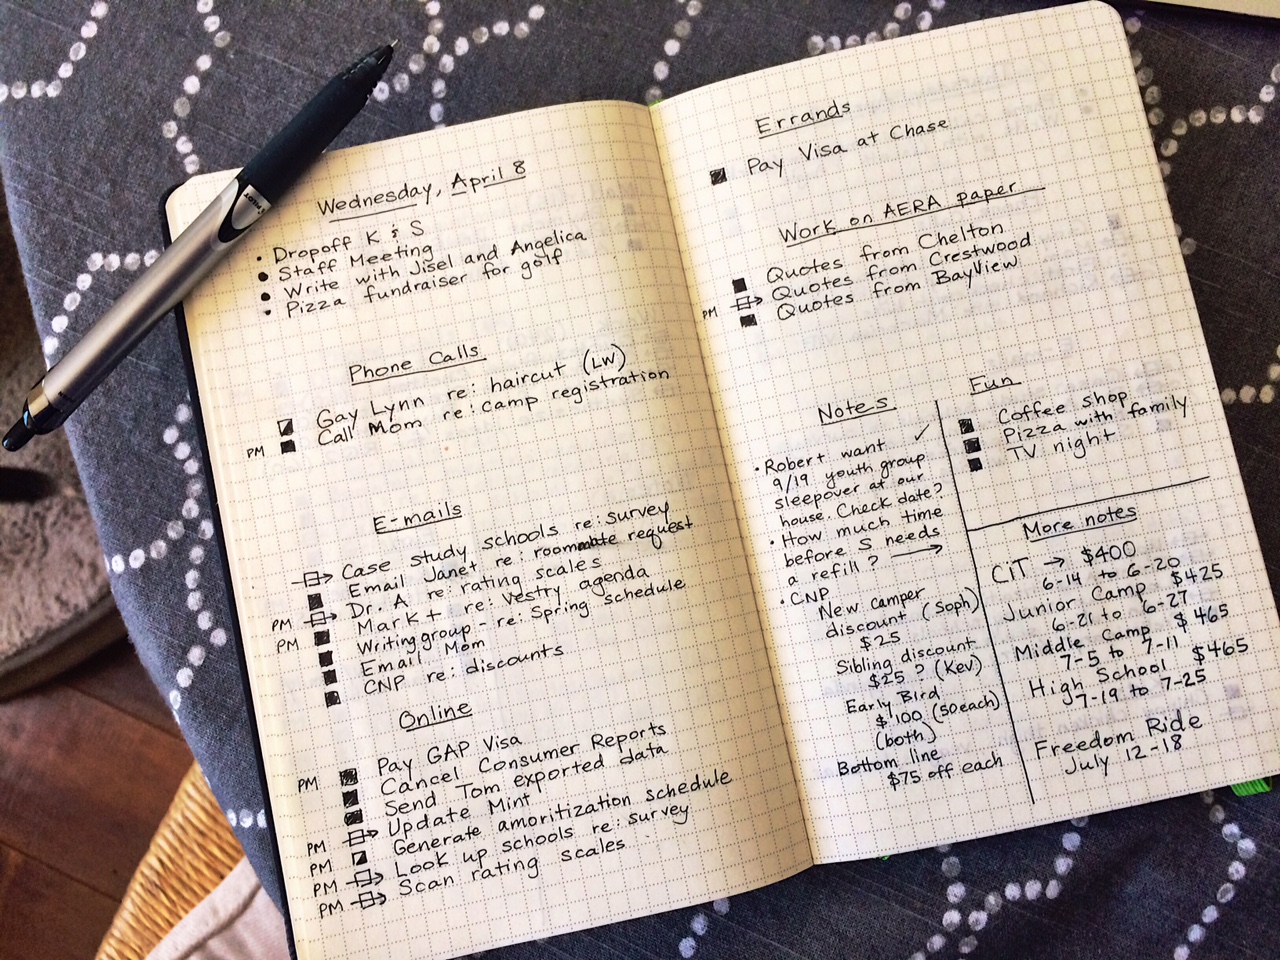 Wednesday, April 8
• Dropoff K & S
• Staff Meeting
• Write with Jisel and Angelica
• Pizza fundraiser for golf
Phone Calls
Gay Lynn re: haircut (LW)
PM Call Mom re: camp registration
E-mails
Case study schools re: survey
Email Janet re: roommate request
PM Dr. A re: rating scales
PM Mark t re: Vestry agenda
Writing group - re: Spring schedule
Email Mom
CNP re: discounts
Online
PM Pay GAP Visa
Cancel Consumer Reports
Send Tom exported data
PM Update Mint
PM Generate amoritization schedule
PM Look up schools re: survey
PM Scan rating scales
PILOT
Errands
Pay Visa at Chase
Work on AERA paper
Quotes from Chelton
PM Quotes from Crestwood
Quotes from BayView
Notes
• Robert want ✓
9/19 youth group
sleepover at our
house. Check date?
• How much time
before S needs
a refill? →
• CNP
New camper
discount (Soph)
$25
Sibling discount
$25 ? (Kev)
Early Bird
$100 (50 each)
(both)
Bottom line
$75 off each
Fun
Coffee shop
Pizza with family
TV night
More notes
CiT → $400
6-14 to 6-20
Junior Camp $425
6-21 to 6-27
Middle Camp $465
7-5 to 7-11
High School $465
7-19 to 7-25
Freedom Ride
July 12-18